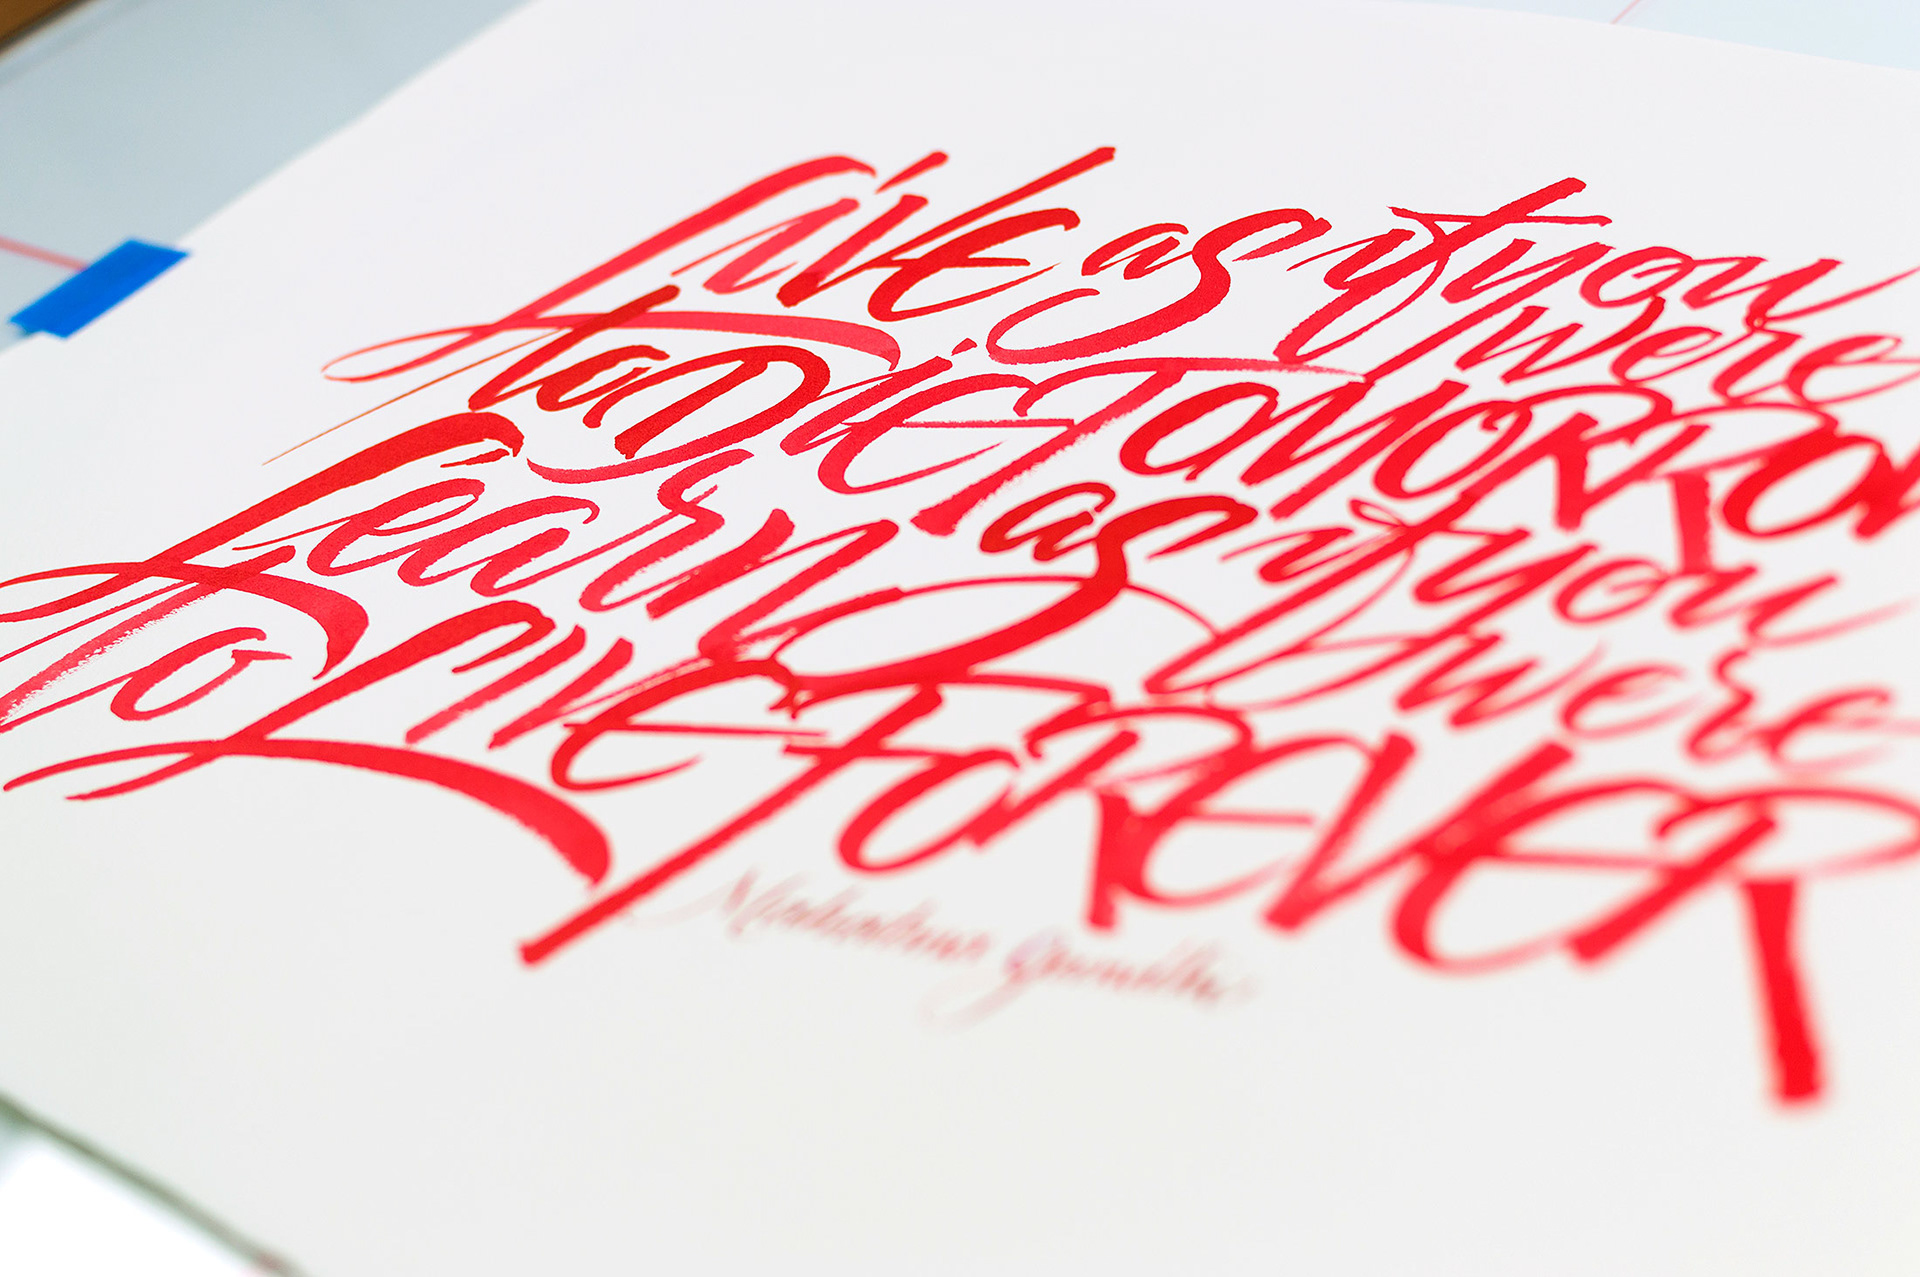 Live as if you were
to Die TOMORROW
Learn as if you were
to Live FOREVER
Mahatma Gandhi